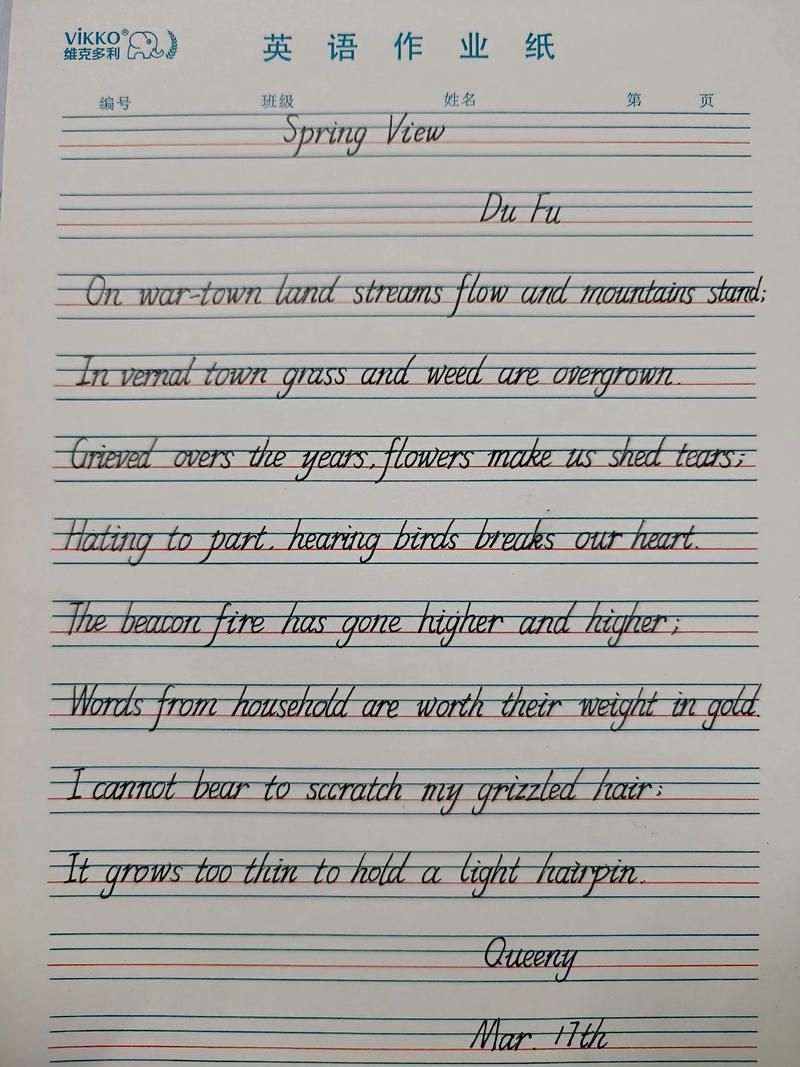 VIKKO®
维克多利
英语作业纸
编号 班级 姓名 第 页
Spring View
Du Fu
On war-town land streams flow and mountains stand;
In vernal town grass and weed are overgrown.
Grieved overs the years, flowers make us shed tears;
Hating to part, hearing birds breaks our heart.
The beacon fire has gone higher and higher;
Words from household are worth their weight in gold.
I cannot bear to sccratch my grizzled hair;
It grows too thin to hold a light hairpin.
Queeny
Mar. 17th